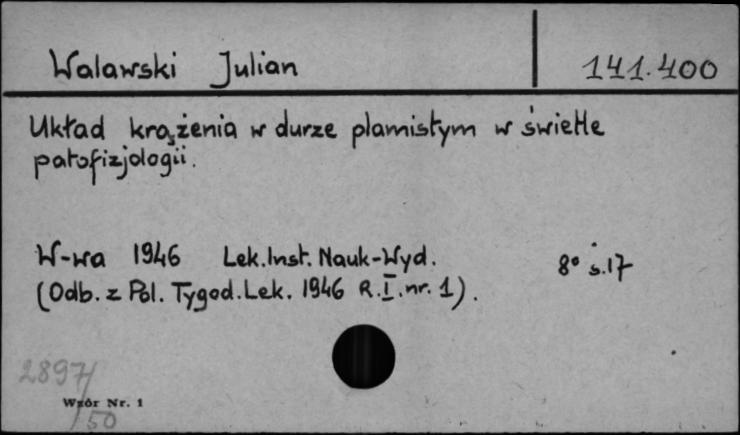 Walawski Julian 141.400
Układ krążenia w durze plamistym w świetle
patofizjologii.
W-wa 1946 Lek.Inst. Nauk-Wyd. 8° s.17
(Odb. z Pol. Tygod. Lek. 1946 R.I.nr. 1).
2897/
Wzór Nr. 1
/50